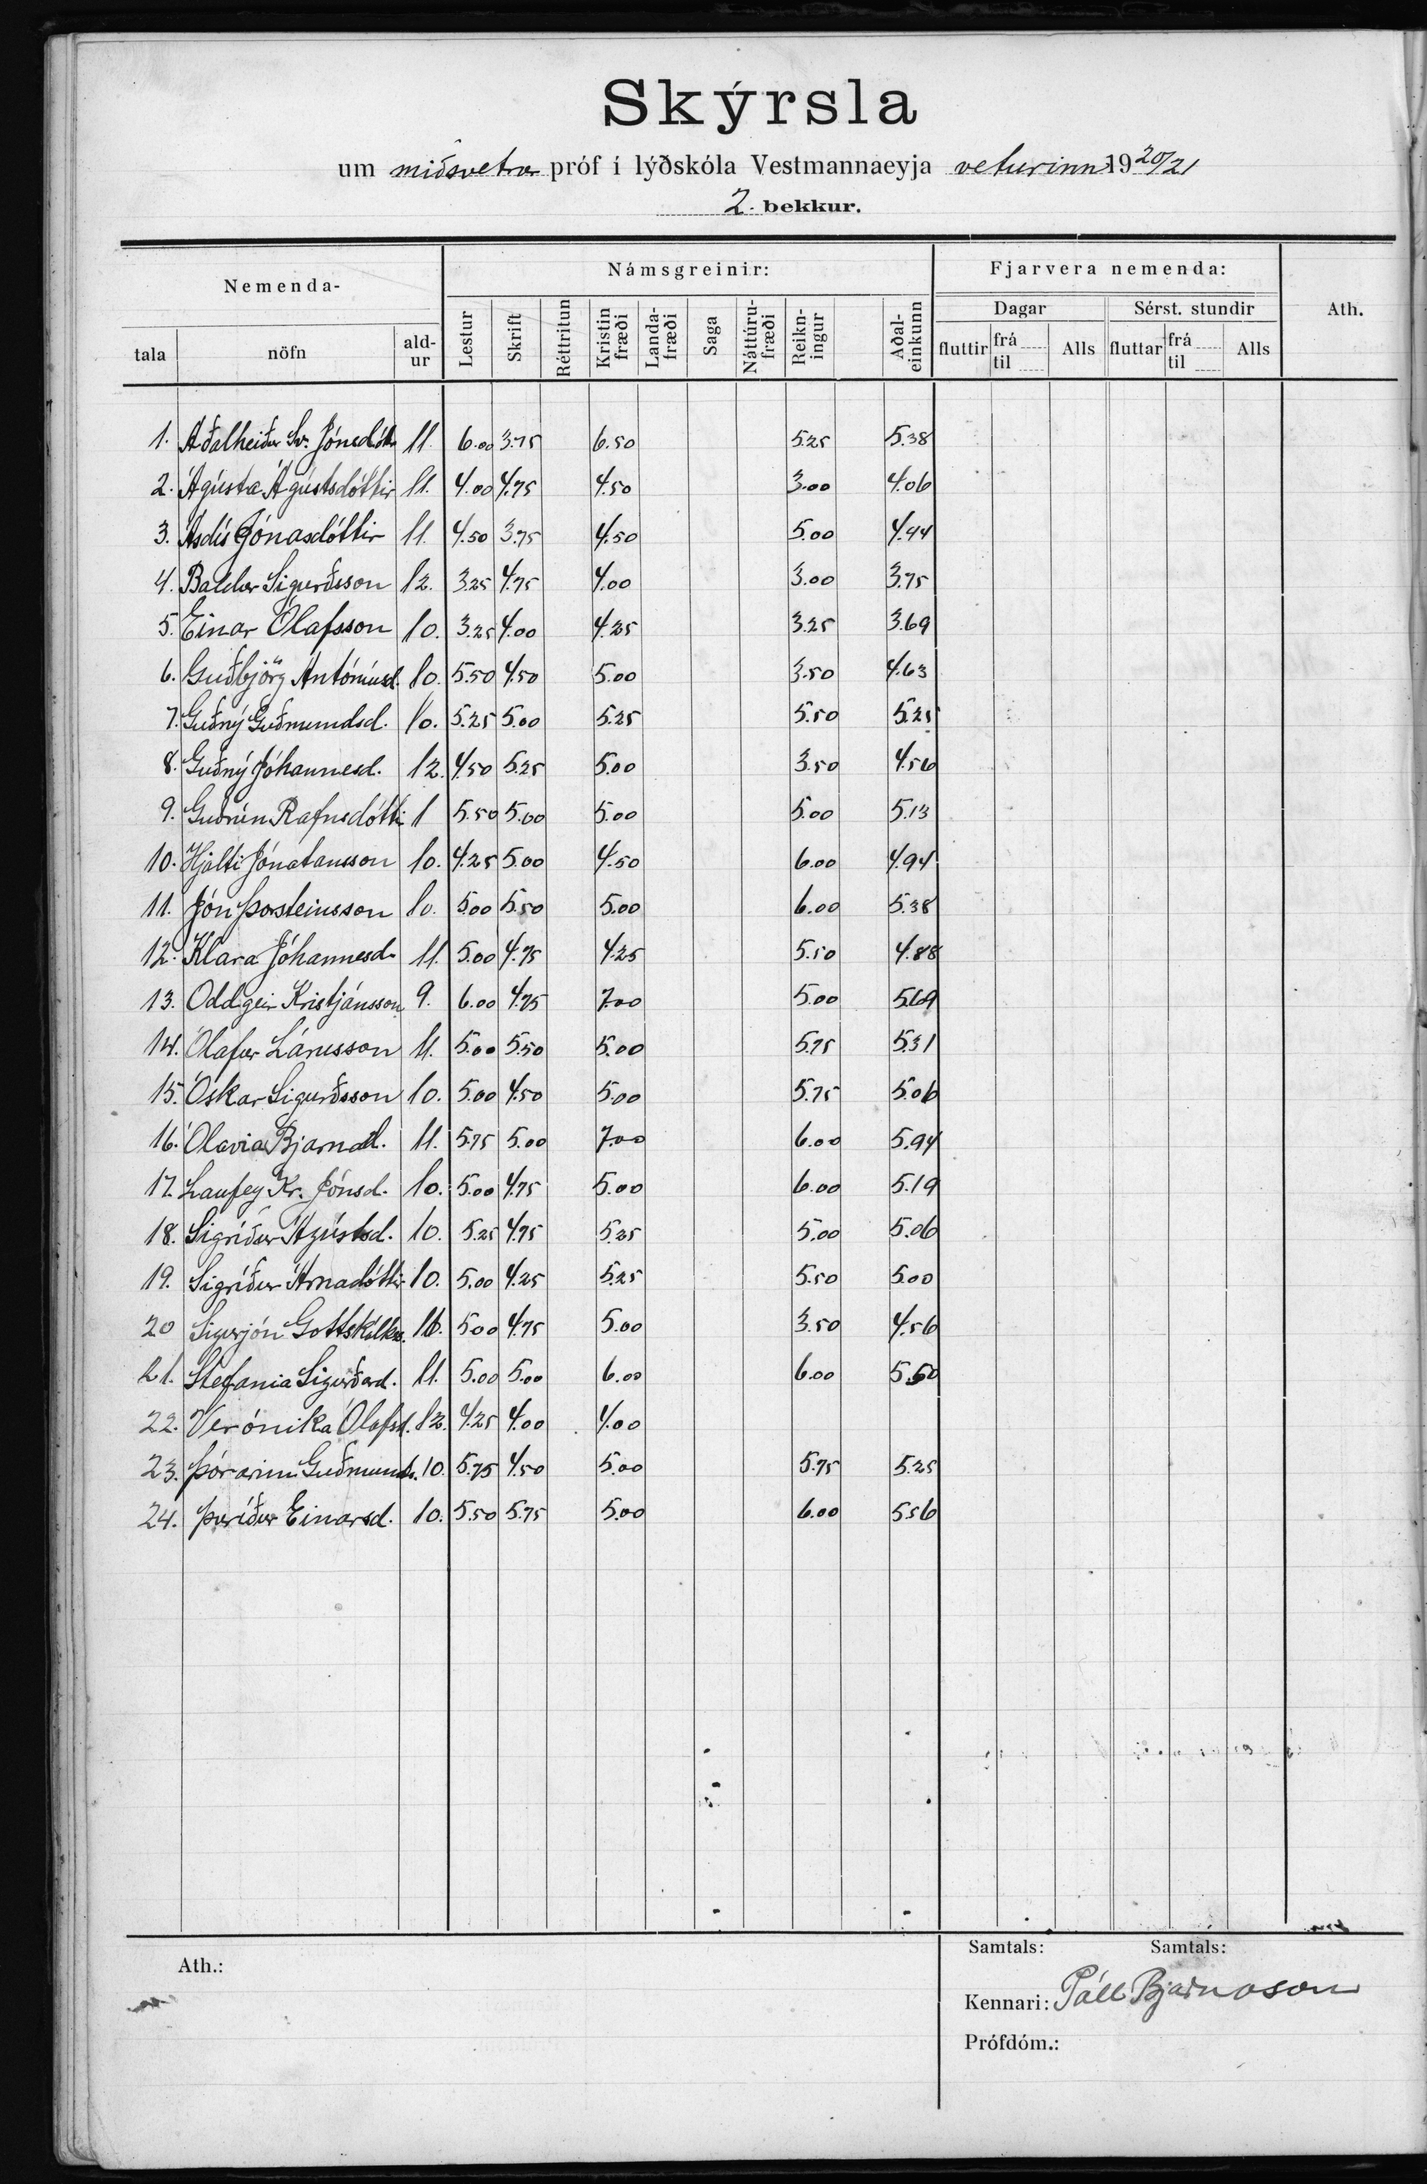 Skýrsla
um miðsvetrar próf í lýðskóla Vestmannaeyja veturinn 1920/21
2. bekkur.
Nemenda- Námsgreinir: Fjarvera nemenda: Ath.
Dagar Sérst. stundir
tala nöfn ald-ur Lestur Skrift Réttritun Kristin fræði Landa-fræði Saga Náttúru-fræði Reikn-ingur Aðal-einkunn fluttir frá til Alls fluttar frá til Alls
1. Aðalheiður Sv. Jónsdótt. 11. 6.00 3.75 6.50 5.25 5.38
2. Ágústa Ágústsdóttir 11. 4.00 4.75 4.50 3.00 4.06
3. Ásdís Jónasdóttir 11. 4.50 3.75 4.50 5.00 4.44
4. Baldur Sigurðsson 12. 3.25 4.75 4.00 3.00 3.75
5. Einar Ólafsson 10. 3.25 4.00 4.25 3.25 3.69
6. Guðbjörg Antóníusd. 10. 5.50 4.50 5.00 3.50 4.63
7. Guðný Guðmundsd. 10. 5.25 5.00 5.25 5.50 5.25
8. Guðný Jóhannesd. 12. 4.50 5.25 5.00 3.50 4.56
9. Guðrún Rafnsdótti 1 5.50 5.00 5.00 5.00 5.13
10. Hjalti Jónatansson 10. 4.25 5.00 4.50 6.00 4.94
11. Jón Þorsteinsson 10. 5.00 5.50 5.00 6.00 5.38
12. Klara Jóhannesd. 11. 5.00 4.75 4.25 5.50 4.88
13. Oddgeir Kristjánsson 9. 6.00 4.75 7.00 5.00 5.69
14. Ólafur Lárusson 11. 5.00 5.50 5.00 5.75 5.31
15. Óskar Sigurðsson 10. 5.00 4.50 5.00 5.75 5.06
16. Ólavia Bjarnad. 11. 5.75 5.00 7.00 6.00 5.94
17. Laufey Kr. Jónsd. 10. 5.00 4.75 5.00 6.00 5.19
18. Sigríður Ágústsd. 10. 5.25 4.75 5.25 5.00 5.06
19. Sigríður Árnadóttir 10. 5.00 4.25 5.25 5.50 5.00
20 Sigurjón 5.00 4.75 5.00 3.50 4.56
21. Stefania Sigurðard. 11. 5.00 5.00 6.00 6.00 5.50
22. Verónika Ólafsd. 12. 4.25 4.00 4.00
23. Þórarinn Guðmunds. 10. 5.75 4.50 5.00 5.75 5.25
24. Þuríður Einarsd. 10. 5.50 5.75 5.00 6.00 5.56
Ath.:
Samtals: Samtals:
Kennari: Páll Bjarnason
Prófdóm.: